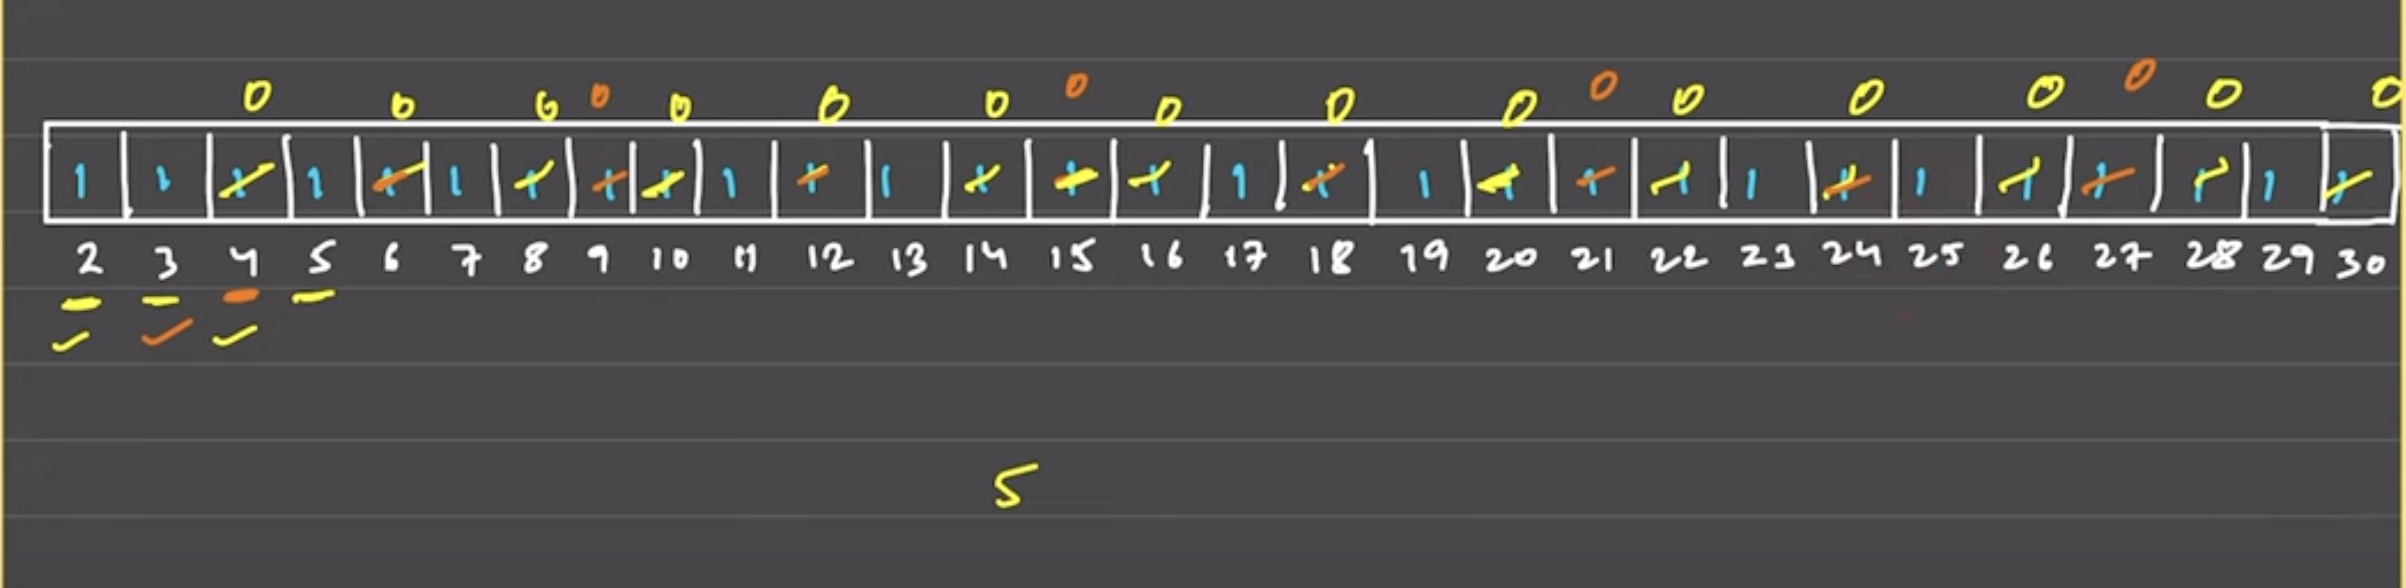 0 0 0 0 0 0 0 0 0 0 0 0 0 0 0 0 0 0
1 1 1 1 1 1 1 1 1 1 1 1 1 1 1 1 1 1 1 1 1 1 1 1 1 1 1 1 1
2 3 4 5 6 7 8 9 10 11 12 13 14 15 16 17 18 19 20 21 22 23 24 25 26 27 28 29 30
5